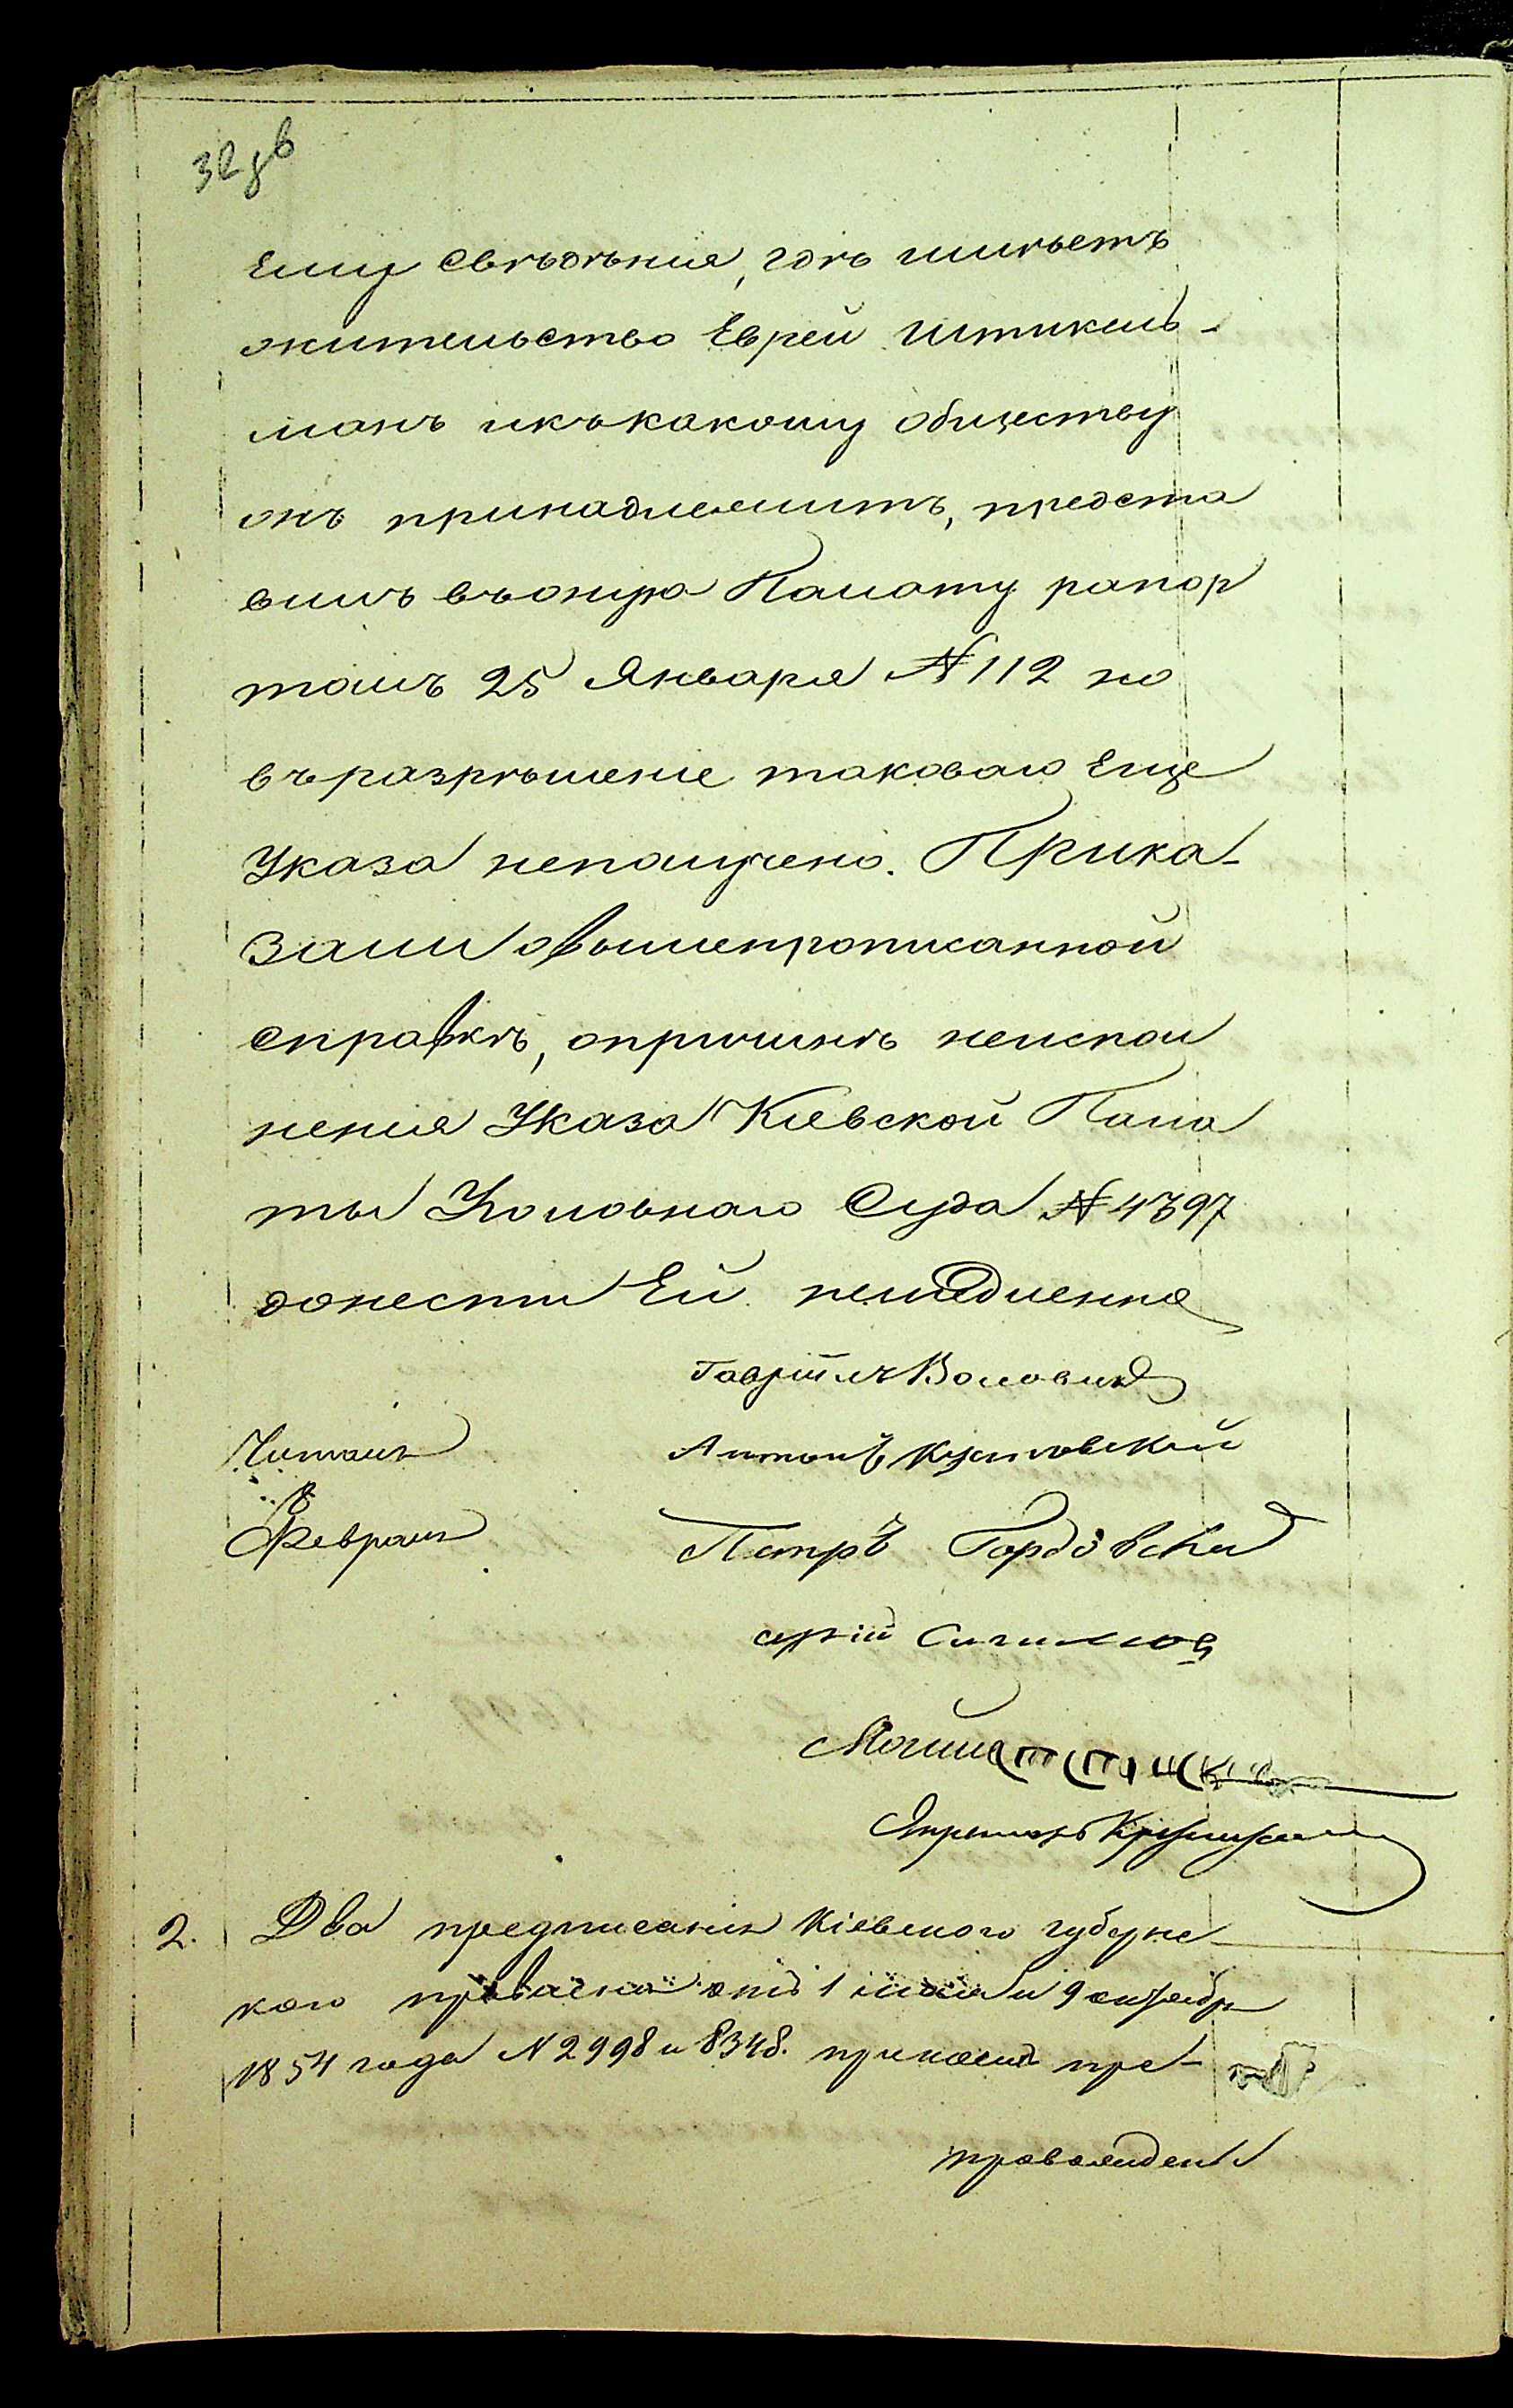 32 зв
ему сведѣнія, гдѣ имѣетъ
жительство Еврей Штикель-
манъ икъ какому обществу
онъ принадлежитъ, предста
вилъ въ оную Палату рапор
томъ 25 Января № 112 но
въ разрѣшеніе таковаго Еще
Указа неполучено. Прика-
зали о вышепрописанной
справкѣ, опричинѣ неиспол
ненія Указа Кіевской Пала
ты Уголовнаго Суда № 4397
донести Ей немедленно
Гавріилъ Воловикъ
Читалъ
Антонъ
8
Февраля
Петръ Гордовскій
2. Два предписанія Кіевскаго губернс
каго правленія отъ 1 и 9 октября
1854 года № 2998 и 8348. при коемъ пре-